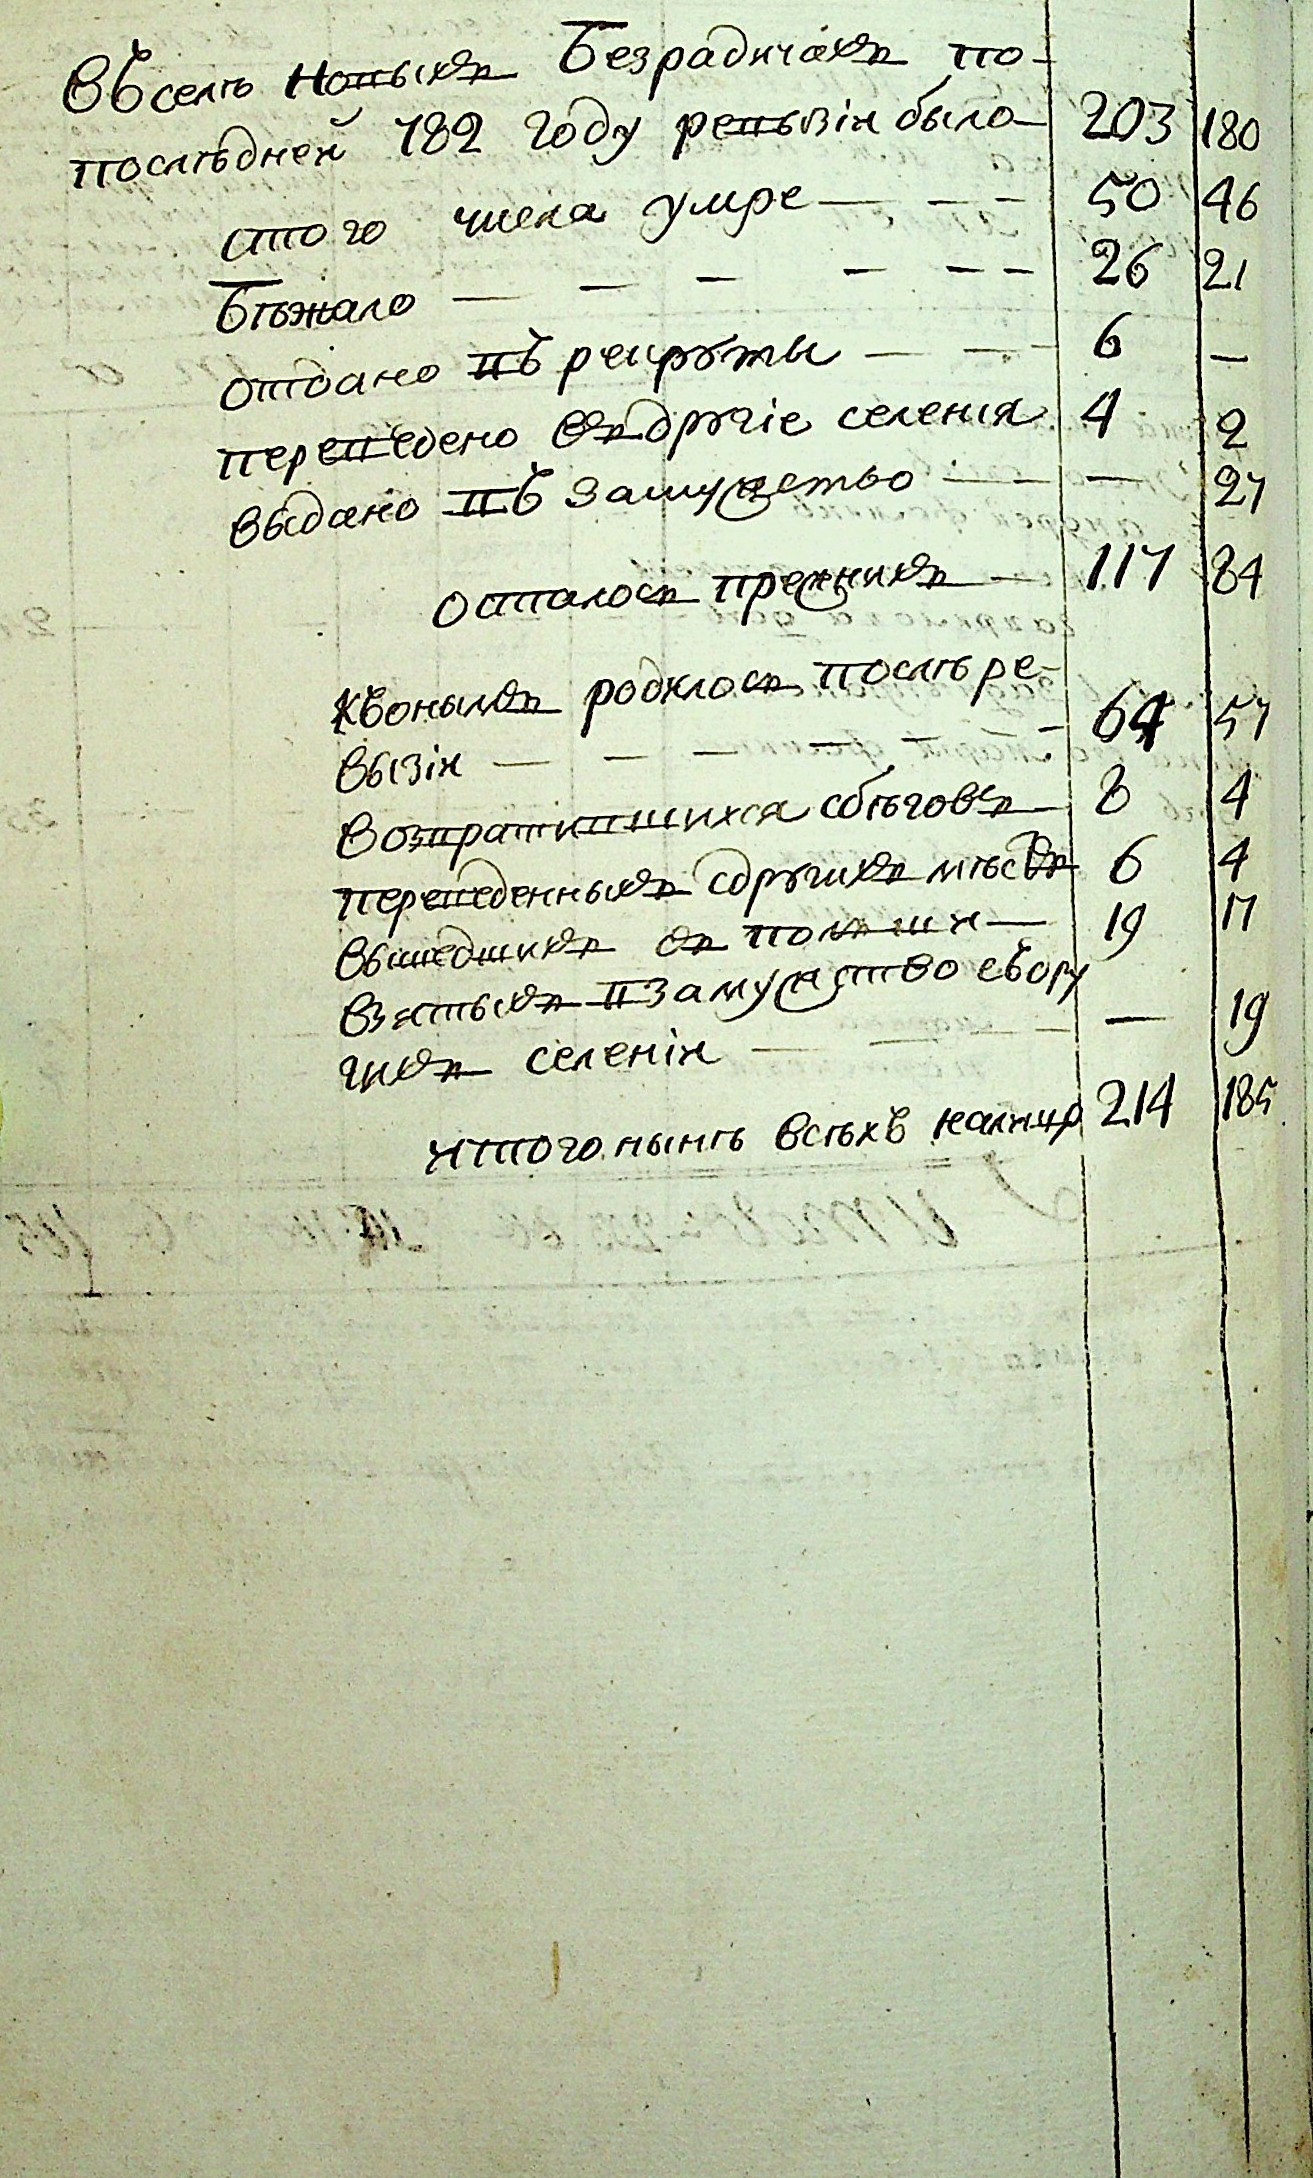 Въ селѣ Новыхъ Безрадичахъ по
последней 782 году ревызіи было 203 180
стого числа умре — — — 50 46
Бѣжало — — — — — — 26 21
отдано въ рекруты — — — 6 —
переведено въ другіе селенія 4 2
выдано въ замужество — — — 27
осталось прежнихъ — 117 84
Къ онымъ родилось послѣ ре-
вызіи — — — — — — 64 57
возвратившихся сбѣговъ — 8 4
переведенныхъ сдругихъ мѣстъ 6 4
вышедшихъ съ польши — 19 17
взятыхъ взамужство съ дру
гихъ селеніи — — — — 19
итого нынѣ всѣхъ налицо 214 185